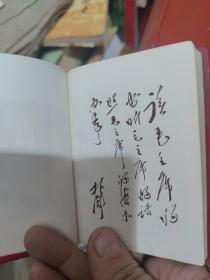 读毛主席的
书，听毛主席的话
照毛主席的指示
办事
林彪